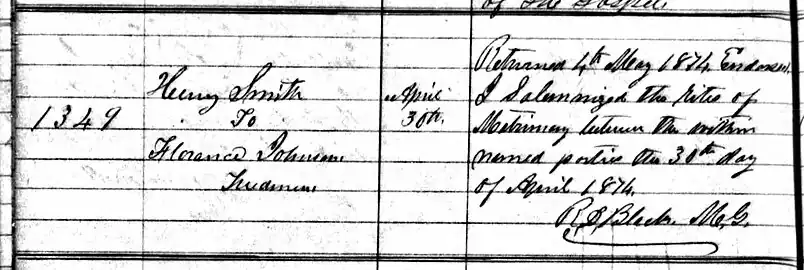 of the Gospel.
1349
Henry Smith
To
Florance Johnson
Freedmen
April
30th.
Returned 4th May 1874. Endorsed.
I Solemnized the rites of
Matrimony between the within
named parties the 30th day
of April 1874.
R. S. Black. M.G.